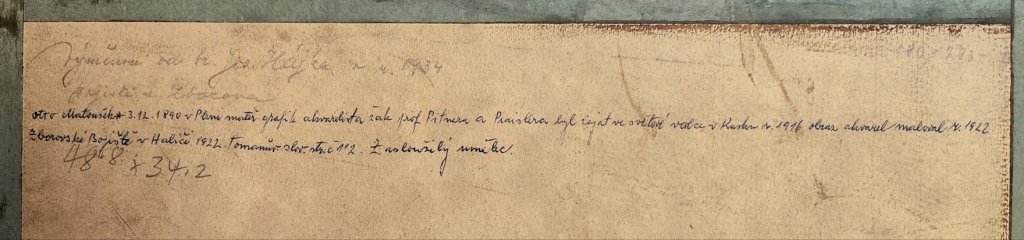 r. 1934
Zborova
oto Matoušek * 3.12.1890 v Plzni malíř grafik akvarelista žák prof Pitnera a Preislera byl zajat ve světové válce v Rusku r. 1916 obraz akvarel maloval r. 1922
Zborovské Bojiště v Haliči 1922. Tomanův slov. str. č 112. Zasloužilý umělec.
48,8 x 34,2